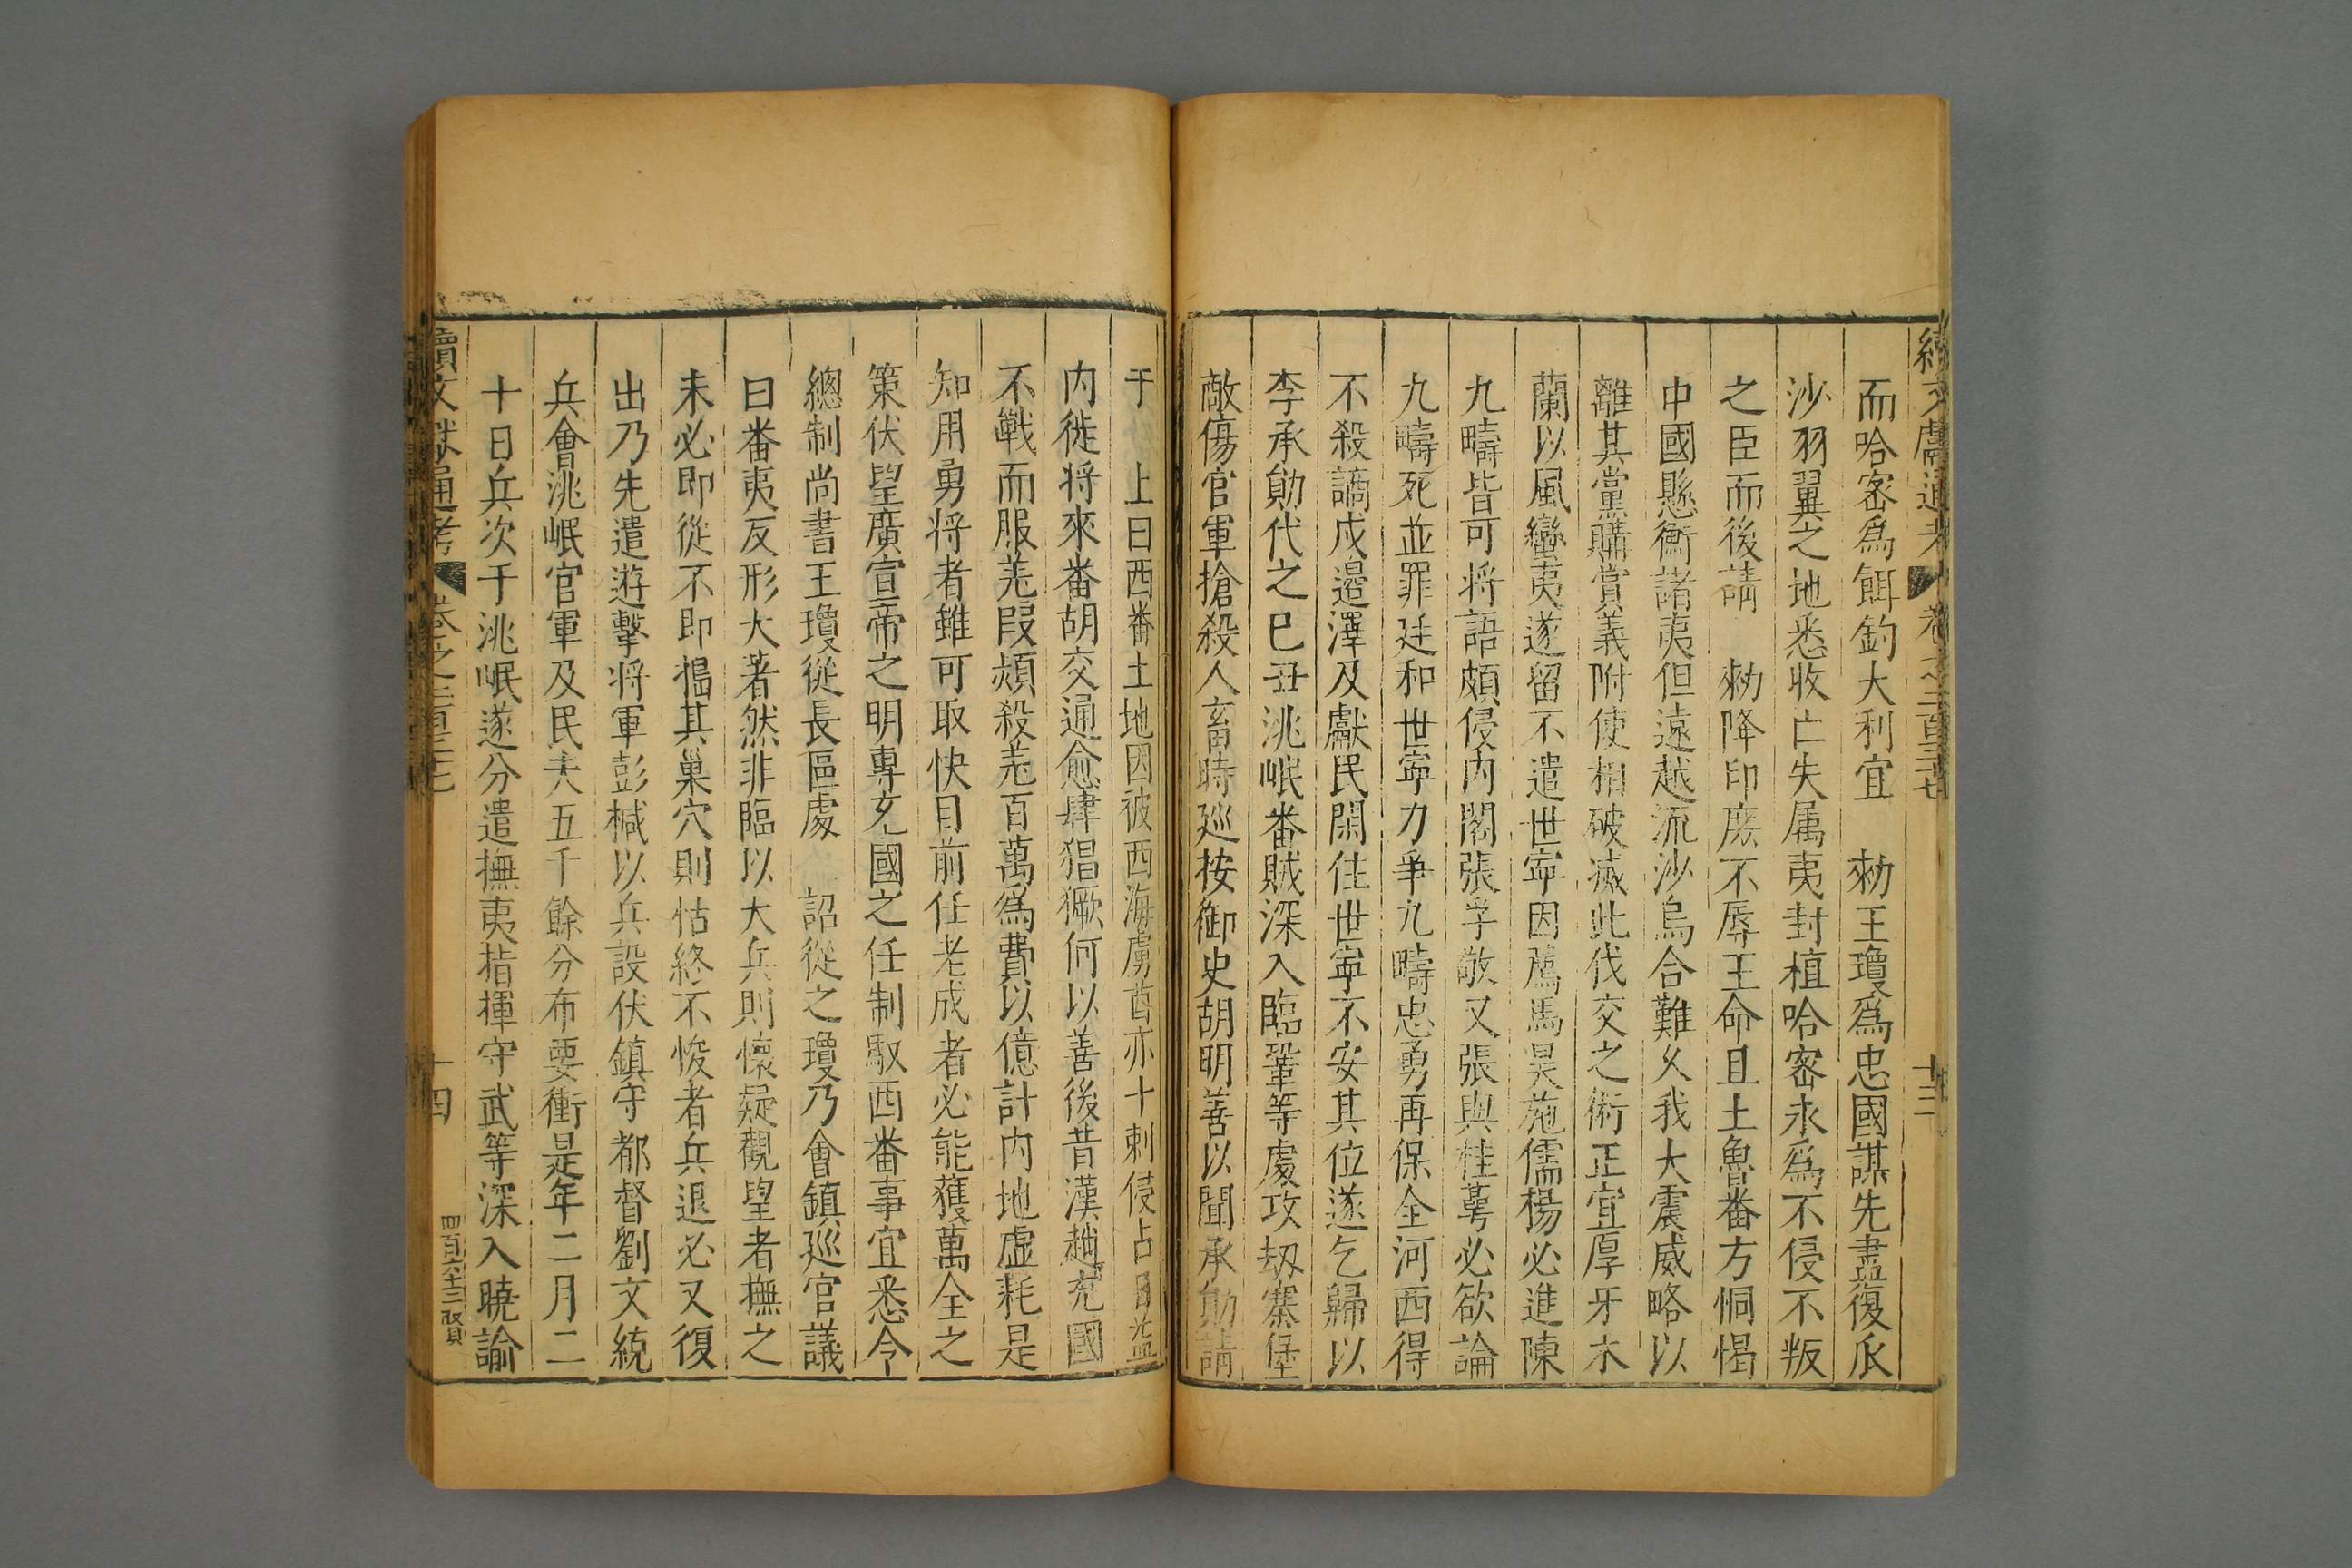 續文獻通考 卷之二百三十七 十三
而哈密爲餌釣大利宜 勑王瓊爲忠國謀先盡復瓜
沙羽翼之地悉收亡失属夷封植哈密永爲不侵不叛
之臣而後請 勑降印庶不辱王命且土魯番方恫愒
中國懸衡諸夷但遠越流沙烏合難久我大震威略以
離其黨購賞義附使相破滅此伐交之術正宜厚牙木
蘭以風蠻夷遂留不遣世寧因薦馬昊施儒楊必進陳
九疇皆可将語頗侵内閣張孚敬又張與桂蕚必欲論
九疇死並罪廷和世寧力爭九疇忠勇再保全河西得
不殺謫戍邉澤及獻民閑住世寧不安其位遂乞歸以
李承勛代之巳丑洮岷番賊深入臨鞏等處攻刼寨堡
敵傷官軍搶殺人畜時廵按御史胡明善以聞承勛請
于 上曰西番土地因被西海虜酋亦卜剌侵占日益
内徙将來番胡交通愈肆猖獗何以善後昔漢趙充國
不戰而服羌段熲殺羌百萬爲費以億計内地虛耗是
知用勇将者雖可取快目前任老成者必能獲萬全之
策伏望廣宣帝之明專充國之任制馭西番事宜悉令
總制尚書王瓊從長區處 詔從之瓊乃會鎮廵官議
曰番夷反形大著然非臨以大兵則懷疑觀望者撫之
未必即從不即搗其巢穴則怙終不悛者兵退必又復
出乃先遣遊擊将軍彭椷以兵設伏鎮守都督劉文統
兵會洮岷官軍及民夫五千餘分布要衝是年二月二
十日兵次于洮岷遂分遣撫夷指揮守武等深入曉諭
續文獻通考 卷之二百三十七 十四 四百六十三 賢